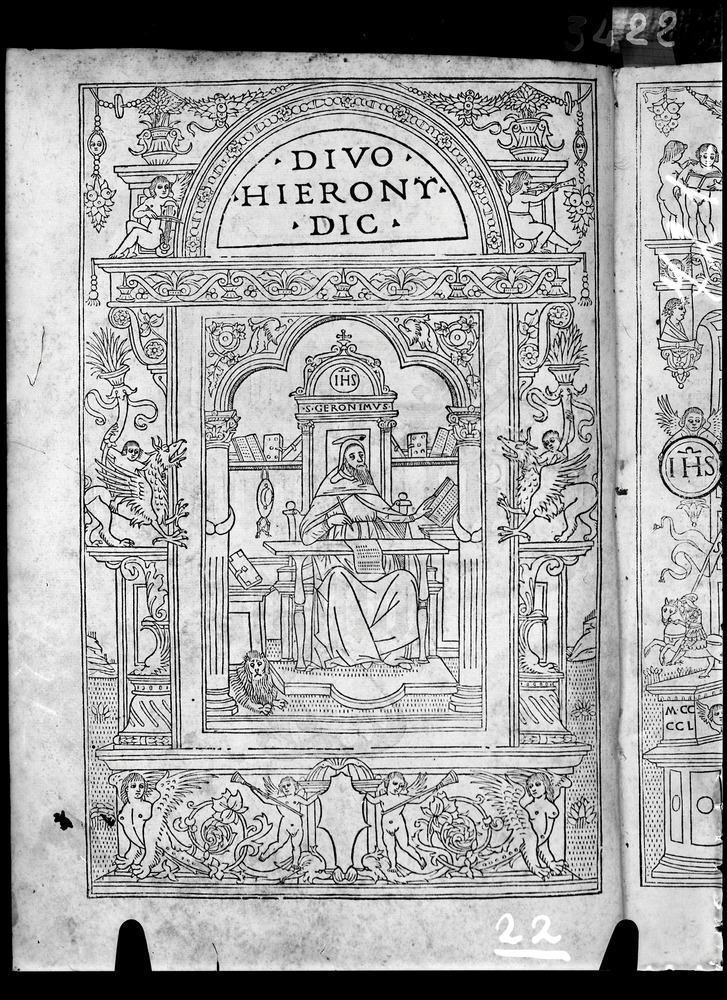 3422
· DIVO ·
· HIERONY ·
· DIC ·
IHS
· S · GERONIMVS ·
IHS
M · CC
CCL
22